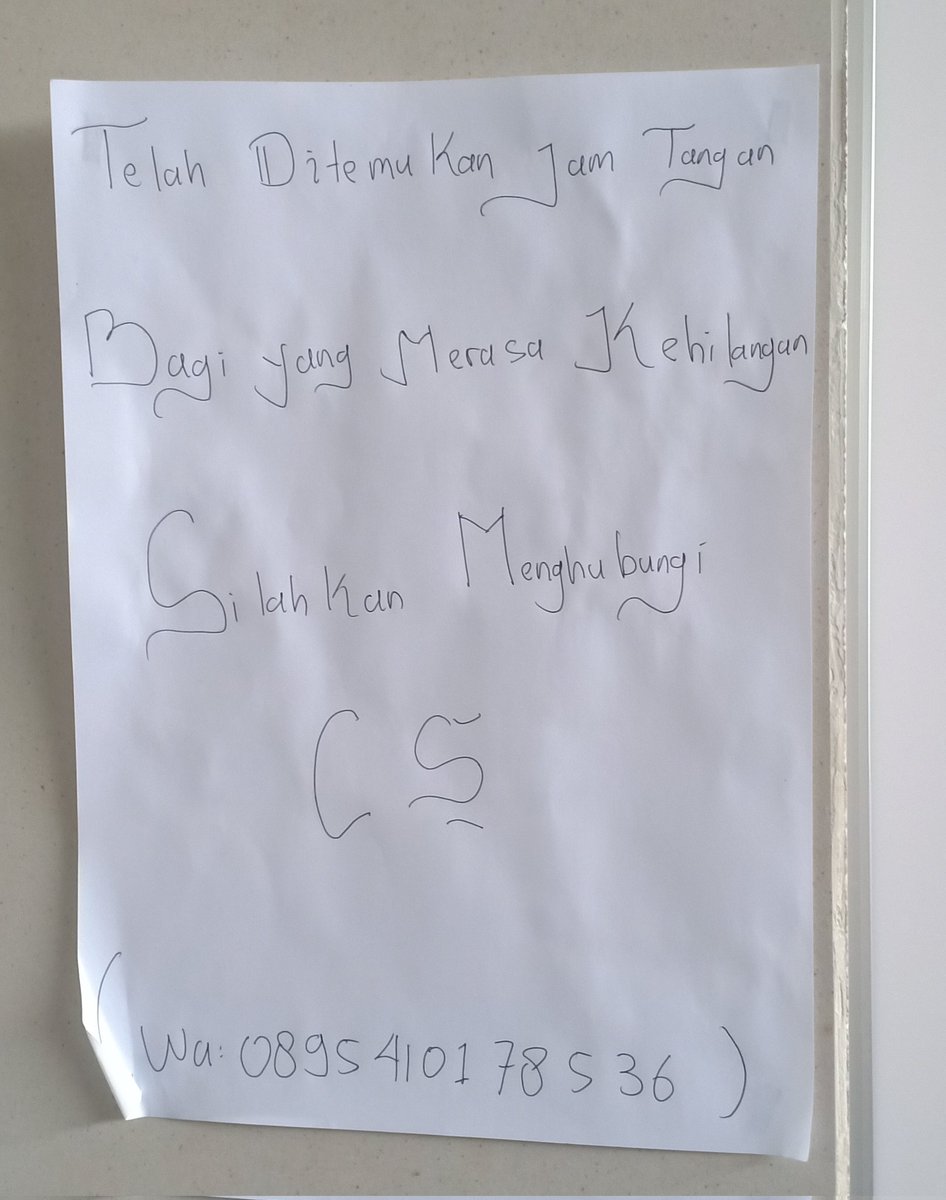 Telah Ditemukan Jam Tangan
Bagi yang Merasa Kehilangan
Silahkan Menghubungi
CS
(Wa: 0895 4101 78 5 36)